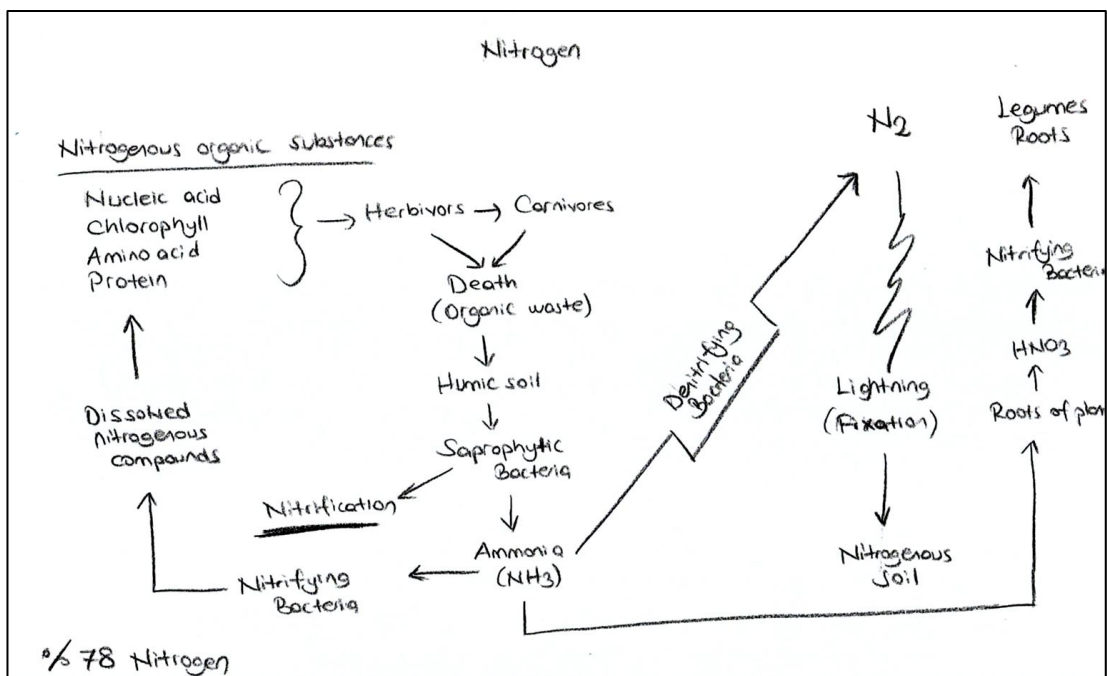 Nitrogen
Nitrogenous organic substances
Nucleic acid
Chlorophyll
Amino acid
Protein
Herbivors
Carnivores
Death
(Organic waste)
Humic soil
Saprophytic
Bacteria
Nitrification
Ammonia
(NH3)
Nitrifying
Bacteria
Dissolved
nitrogenous
compounds
% 78 Nitrogen
Denitrifying
Bacteria
N2
Lightning
(Fixation)
Nitrogenous
soil
Legumes
Roots
Nitrifying
Bacteria
HNO3
Roots of plan